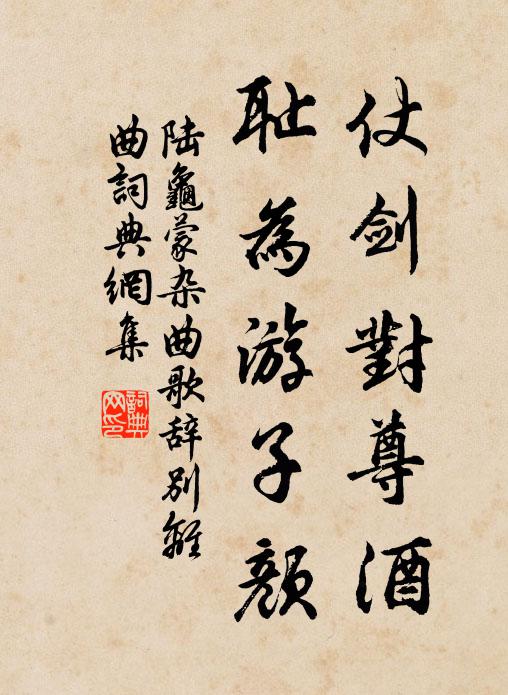 仗剑對尊酒
耻為游子颜
陆龜蒙杂曲歌辞別離
曲詞典網集
詞典
网印